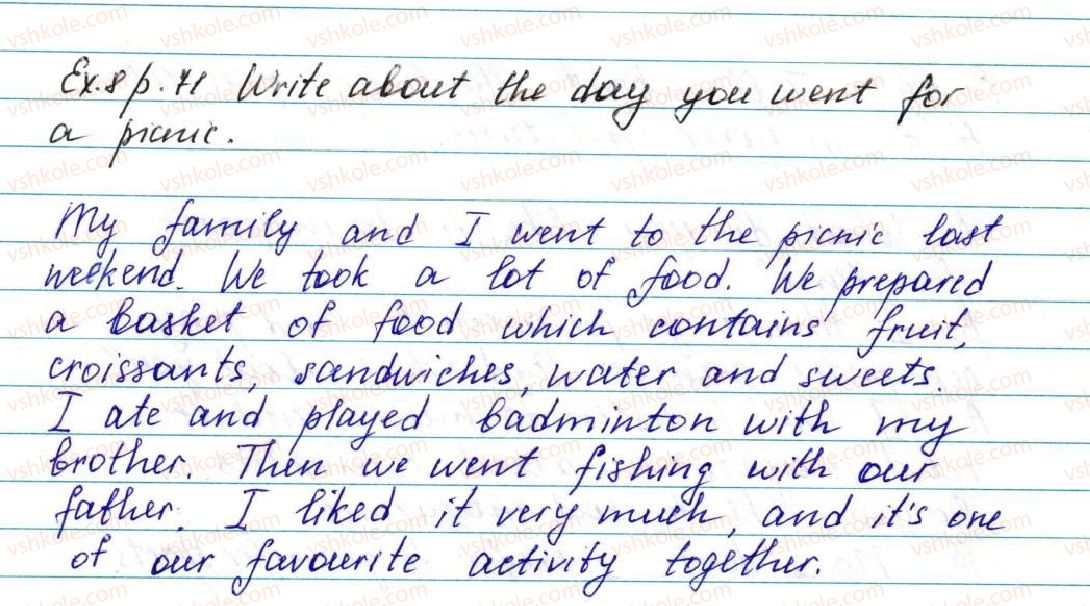 Ex.8 p.71 Write about the day you went for
a picnic.
My family and I went to the picnic last
weekend. We took a lot of food. We prepared
a basket of food which contains fruit,
croissants, sandwiches, water and sweets.
I ate and played badminton with my
brother. Then we went fishing with our
father. I liked it very much, and it's one
of our favourite activity together.
vshkole.com